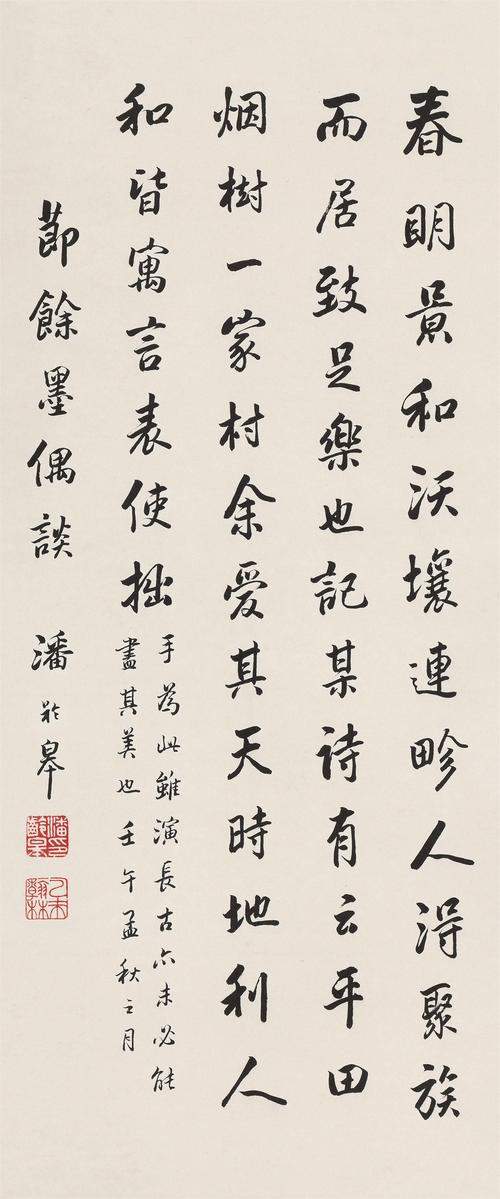 春明景和沃壤連畛人得聚族
而居致足樂也記某詩有云平田
烟樹一家村余愛其天時地利人
和皆寓言表使拙
手為此雖演長古亦未必能
盡其美也壬午孟秋之月
節餘墨偶談
潘齡皋
潘齡皋印
乙未翰林